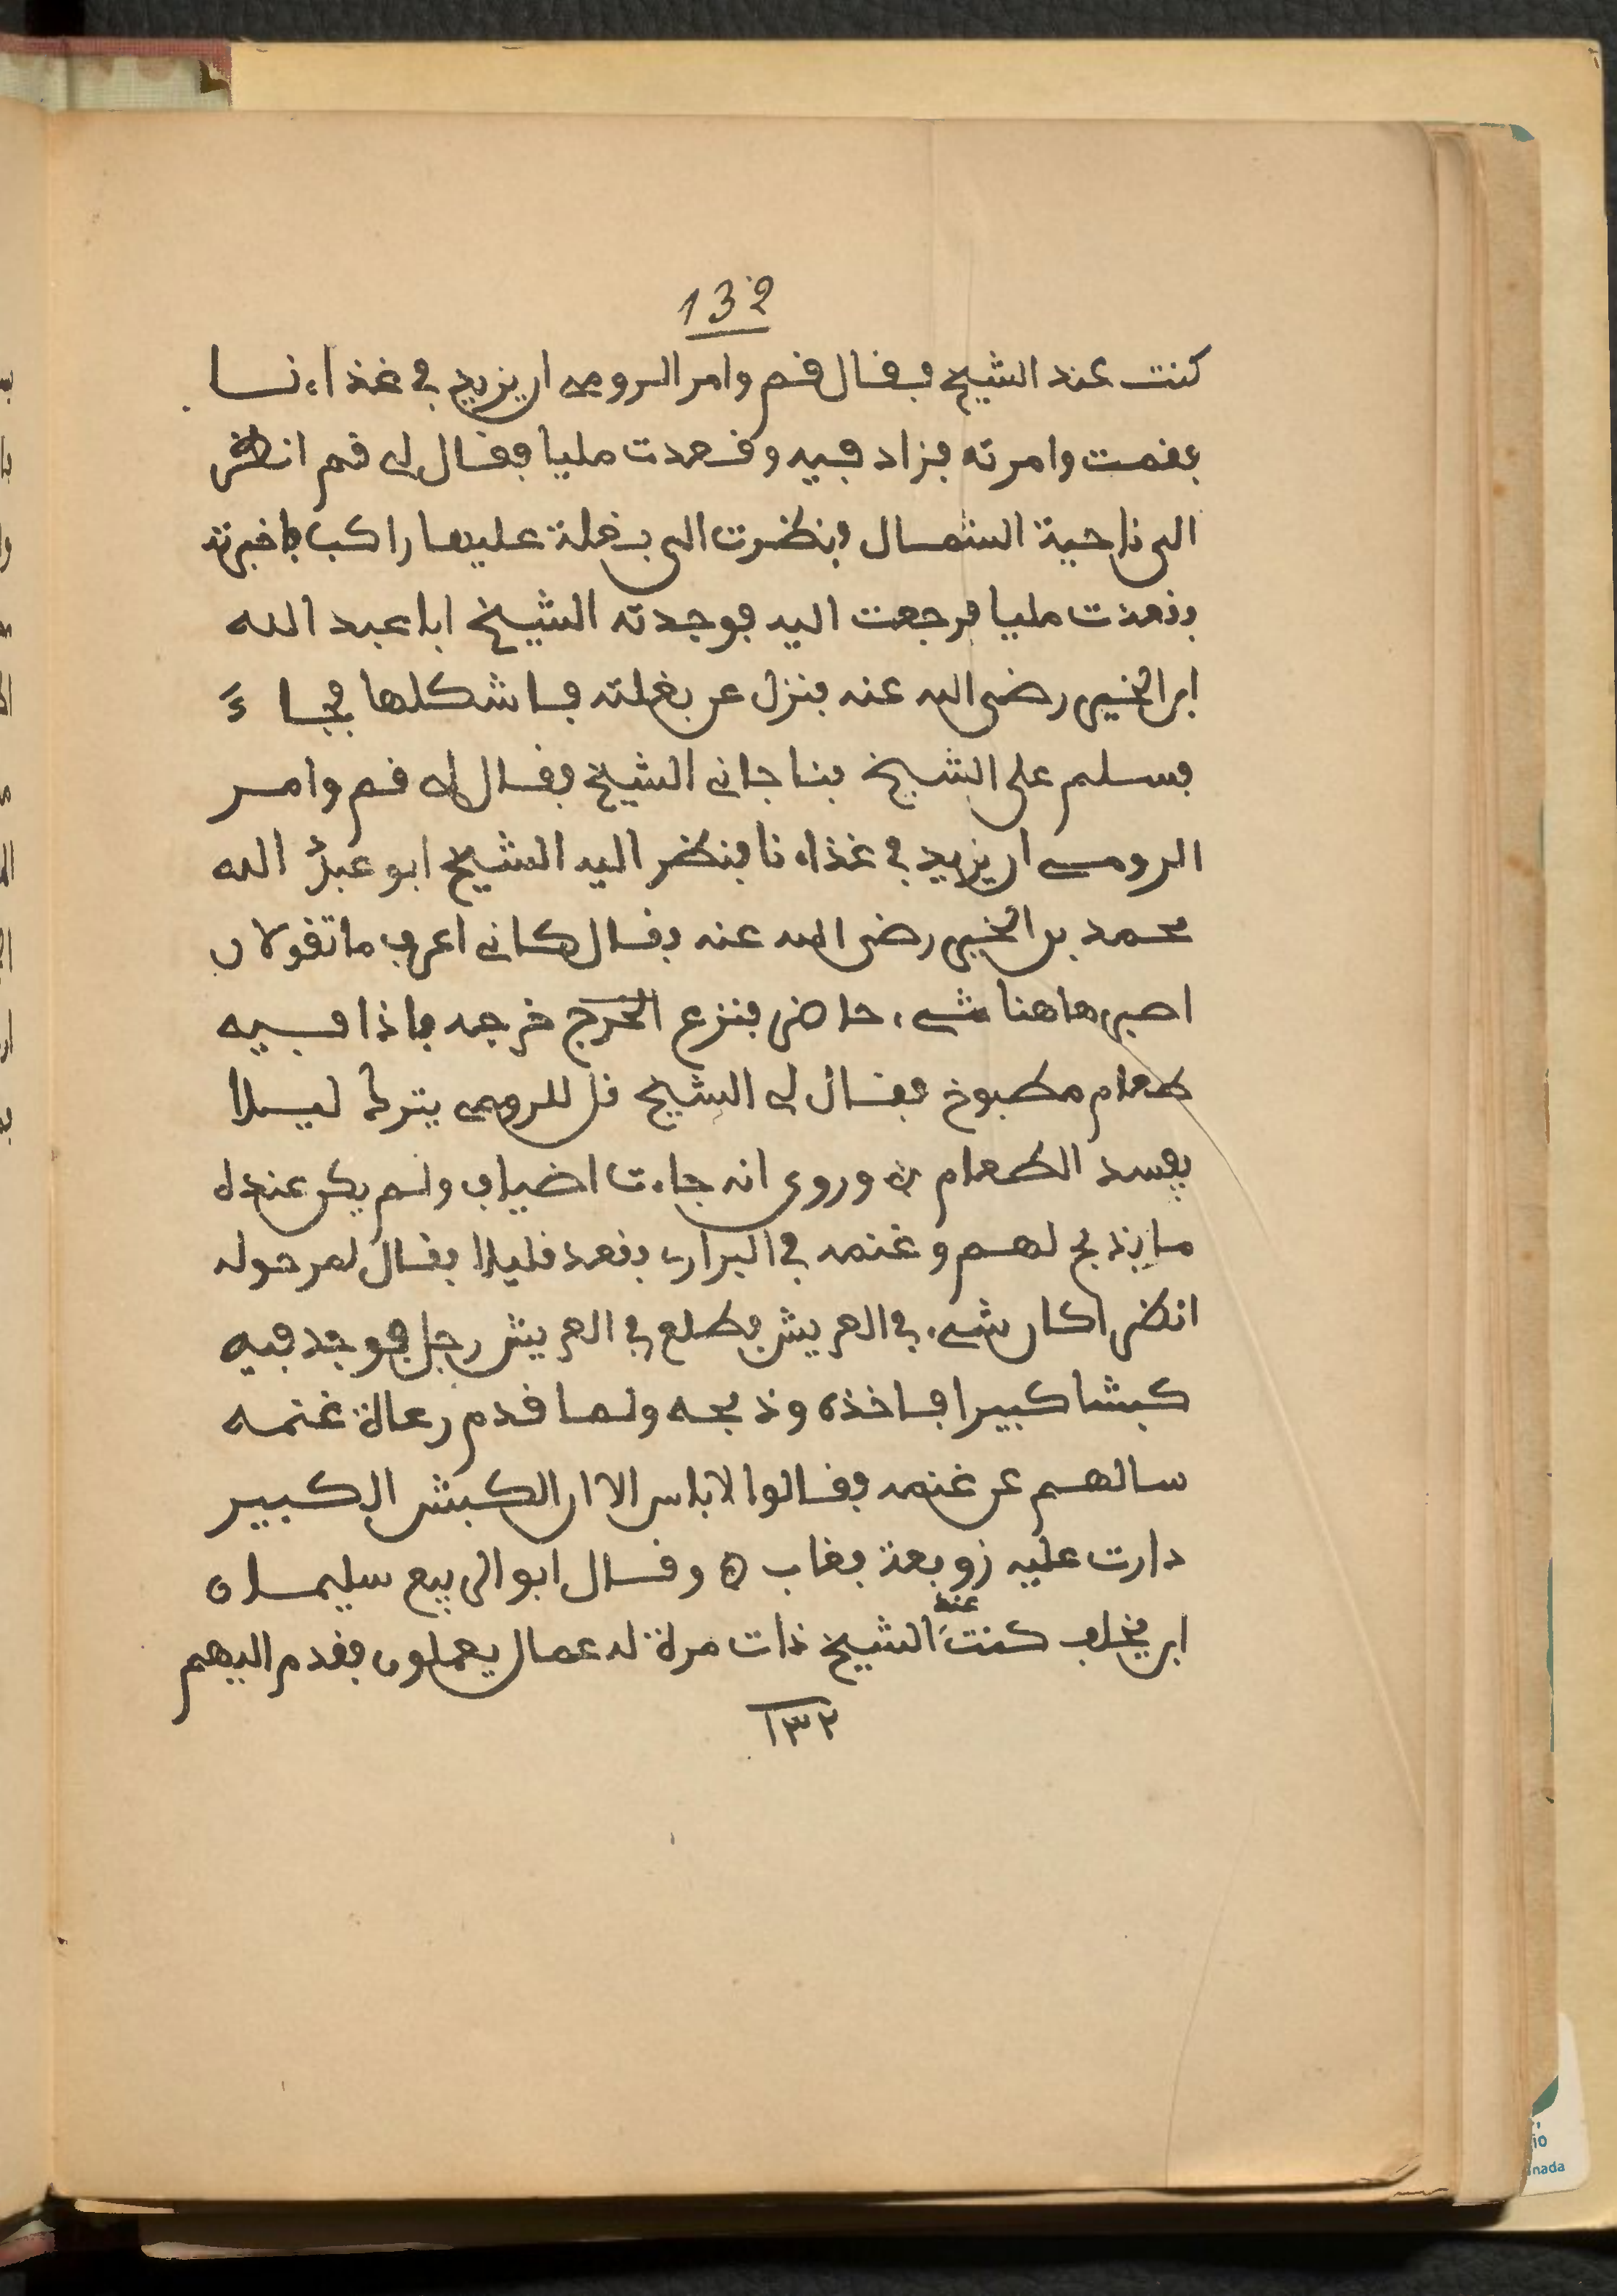 132
كنت عند الشيخ فقال قم وامر الرومى ان يزيد في غذاءنا
فقمت وامرته فزاد فيه وقعدت مليا فقال لى قم انظر
الى ناحية الشمال فنظرت الى بغلة عليها راكب فاخبرته
فقعدت مليا فرجعت اليه فوجدته الشيخ ابا عبد الله
ابن الخير رضى الله عنه فنزل عن بغلته فاشكلها فجاء
فسلم على الشيخ فناجانى الشيخ فقال لى قم وامر
الرومى ان يزيد في غذاءنا فنظر اليه الشيخ ابو عبد الله
محمد بن الخير رضى الله عنه فقال كانى اعرف ما تقولان
اصبر هاهنا شىء حاضر فنزع الخرج خرجه فاذا فيه
طعام مطبوخ فقال لى الشيخ قل للرومى يترك ليلا
يفسد الطعام ۞ وروى انه جاءت اضياف ولم يكن عنده
ما يذبح لهم وغنمه في البرارى فقعد قليلا فقال لمن حوله
انظر اكان شىء في العريش فطلع في العريش رجل فوجد فيه
كبشا كبيرا فاخذه وذبحه ولما قدم رعاة غنمه
سالهم عن غنمه فقالوا لا باس الا ان الكبش الكبير
دارت عليه زوبعة فغاب ۞ وقال ابو الربيع سليمان
ابن يخلف كنت عند الشيخ ذات مرة له عمال يعملون فقدم اليهم
١٣٢